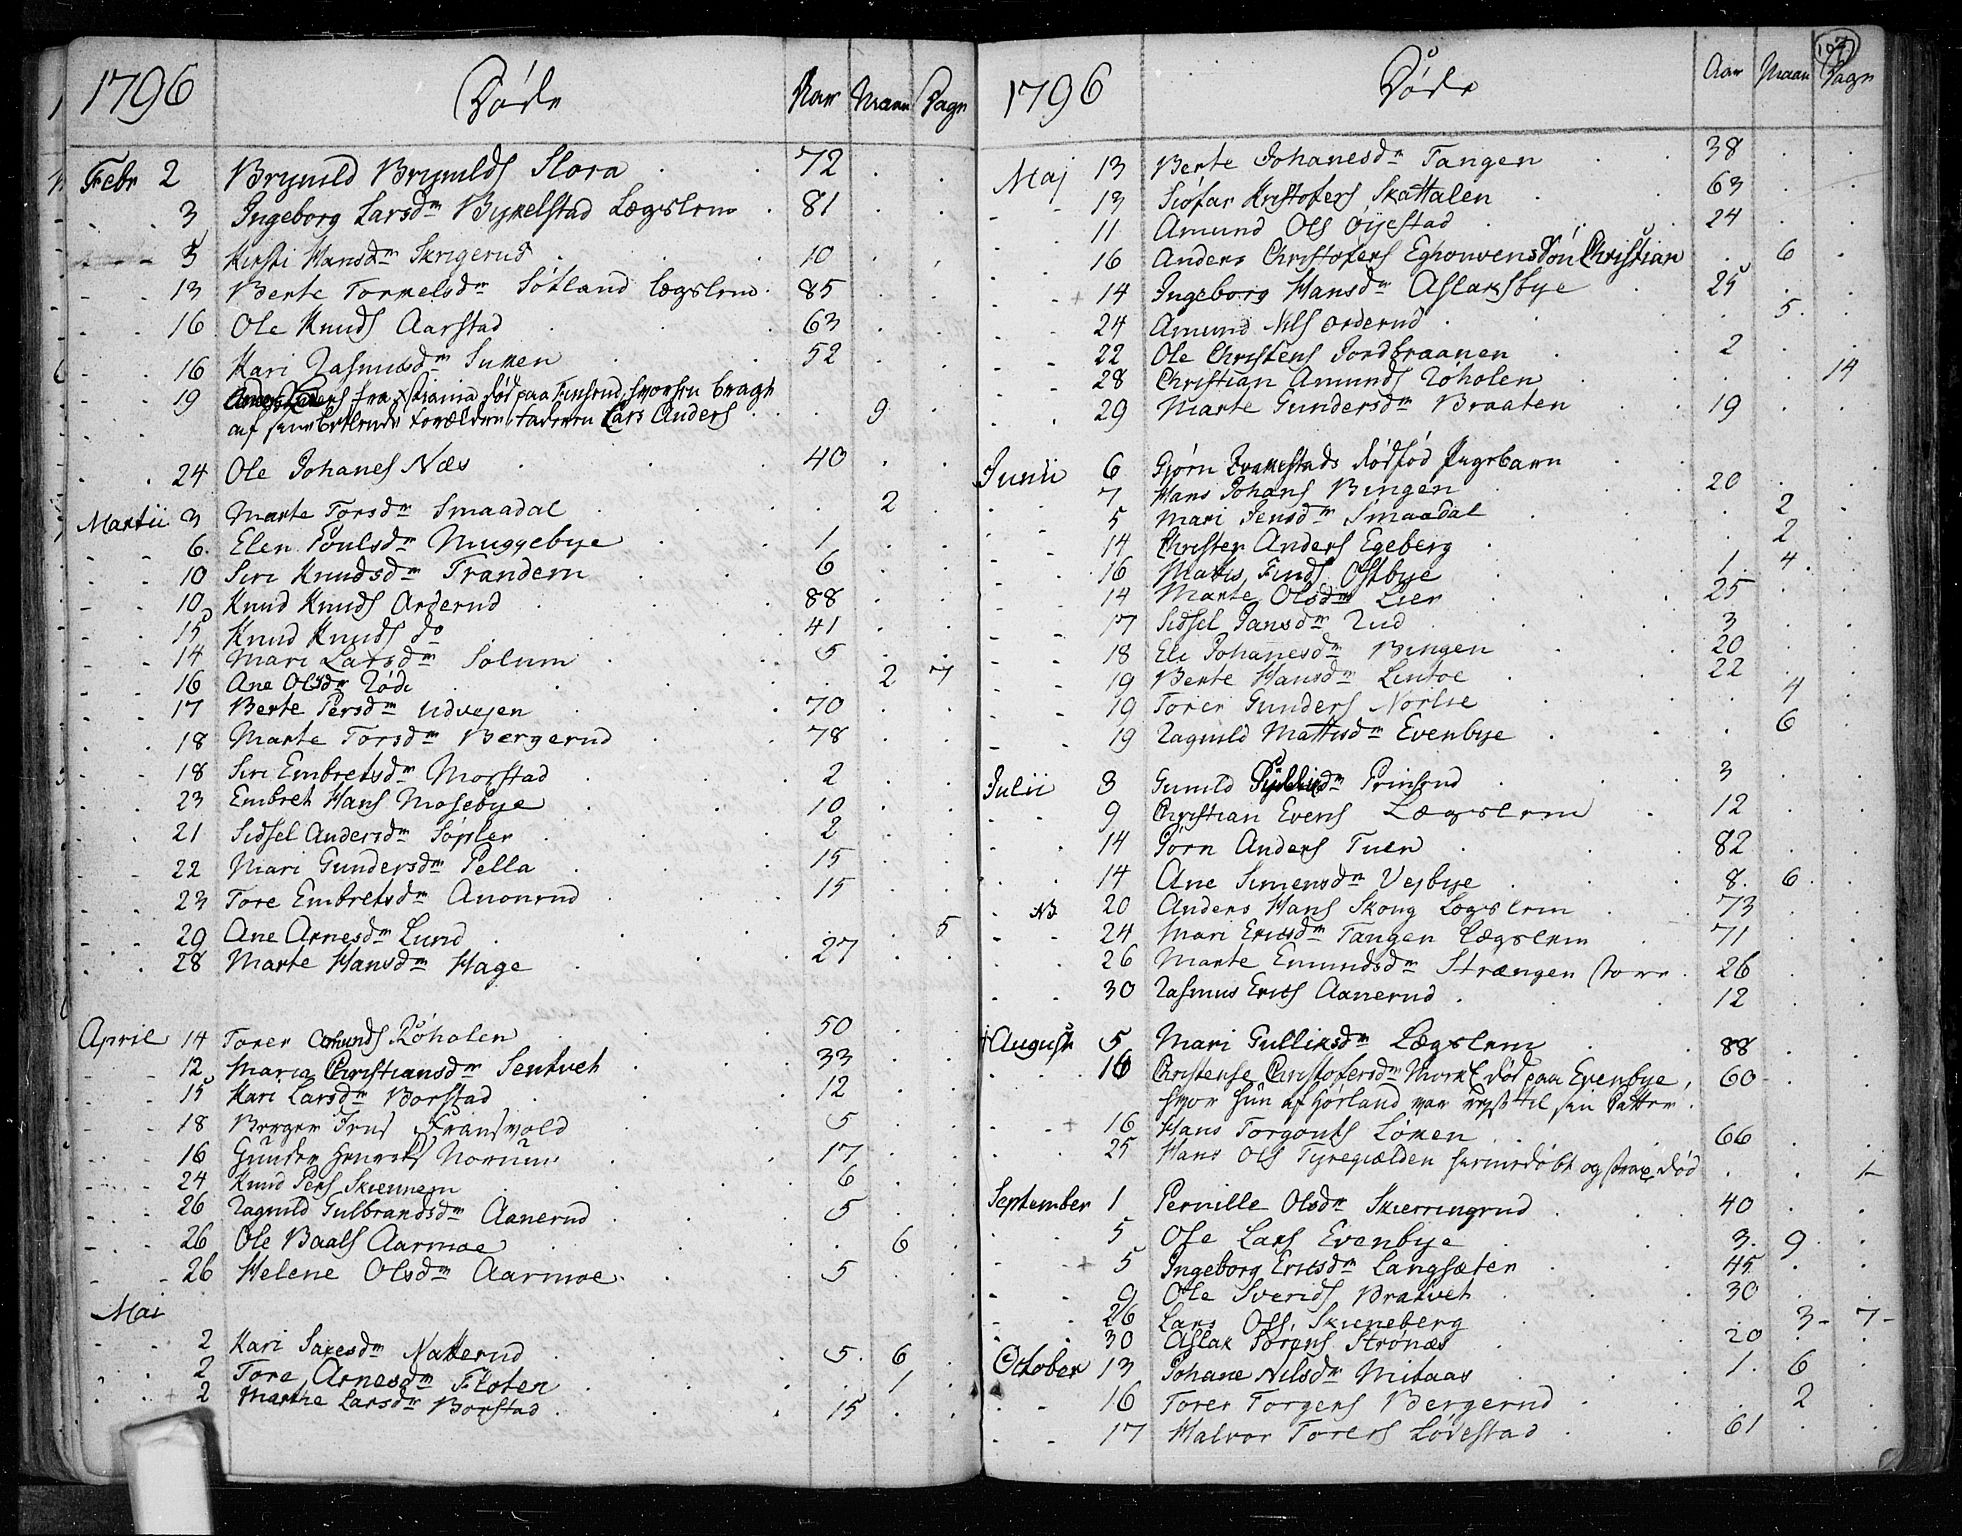 1796 Døde Aar Maan Dage
Febr 2 Brynild Brynilds Slora 72
3 Ingeborg Larsdr Bykelstad Lægslem 81
5 Kirsti Hansdr Skrigerud 10
13 Berte Torkelsdr Søtland Lægslem 85
16 Ole Knuds Aarstad 63
16 Kari Rasmusdr Summen 52
19 fra Xstiania død paa Finsrud, hvorhen bragt
af sine forældre, faderen Lars Anders 9
24 Ole Johanes Næs 40
Martii 3 Marte Torsdr Smaadal 2
6 Elen Poulsdr Muggebye 1
10 Siri Knudsdr Trandem 6
10 Knud Knuds Arderud 88
15 Knud Knuds do 41
14 Mari Larsdr Solum 5
16 Ane Olsdr Røde 2 7
17 Berte Persdr Udvejen 70
18 Marte Torsdr Bergerud 78
18 Siri Embretsdr Morstad 2
23 Embret Hans Mosebye 10
21 Sidsel Andersdr Sopler 2
22 Mari Gundersdr Pella 15
23 Tore Embretsdr Anonrud 15
29 Ane Arnesdr Lund 5
28 Marte Hansdr Hage 27
April 14 Torer Amunds Roholen 50
12 Maria Christiansdr Sentvet 33
15 Kari Larsdr Borstad 12
18 Børger Fransvold 5
16 Gunder Henriks Norum 17
24 Knud Pers Skiennem 6
26 Ragnild Gulbrandsdr Aanerud 5
26 Ole Baals Aarmoe 6
26 Helene Olsdr Aarmoe 5
Mai
2 Kari Saxesdr Nakkerud 5 6
2 Tore Arnesdr Floten 1
+ 2 Marthe Larsdr Borstad 15
107
1796 Døde Aar Maan Dage
Maj 13 Berte Johanesdr Tangen 38
13 Siøfar Kristofers Skattalen 63
11 Amund Ols Øyestad 24
16 Anders Christofers søn Christian 6
+ 14 Ingeborg Hansdr Aslaksbye 25
24 Amund Nils Orderud 5
22 Ole Christens Jordbraanen 2
28 Christian Amunds Roholen 14
29 Marte Gundersdr Braaten 19
Junii 6 Gjørn Krakestads dødfød Pigebarn
7 Hans Johans Bingen 20
5 Mari Jensdr Smaadal 2
14 Christen Anders Egeberg 2
16 Matis Finds Østbye 1 4
14 Marte Olsdr Lien 25
17 Sidsel Jansdr Rud 3
18 Eli Johanesdr Bingen 20
19 Berte Hansdr Lintoe 22
19 Torer Gunders Norlie 4
19 Ragnild Mattisdr Evenbye 6
Julii 3 Gunild Prinsrud 3
9 Christian Evens Lægslem 12
14 Jørn Anders Tuen 82
14 Ane Simensdr Vejbye 8 6
NB 20 Anders Hans Skoug Lægslem 73
24 Mari Ericsdr Tangen Lægslem 71
26 Marte Emundsdr Strængen store 26
30 Rasmus Erics Aanerud 12
+ August 5 Mari Gulliksdr Lægslem 88
16 Christense Christofersdr Mork død paa Evenbye, 60
hvor hun af Hørland var rejst til sin Datter.
+ 16 Hans Torgouts Lømen 66
25 Hans Ols Tyregielden hiemedøbt og strax død 1
September 1 Pernille Olsdr Skierringrud 40
5 Ole Lars Evenbye 3 9
+ 5 Ingeborg Ericsdr Langsæter 45
9 Ole Svends Brakvet 30
26 Lars Ols Skieneberg 3 7
30 Aslak Sørens Strønæs 20
October 13 Johane Nilsdr Mitaas 1 6
16 Torer Torgers Bergerud 2
17 Halvor Torers Lødestad 61